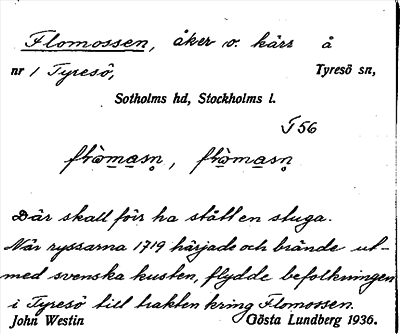 Flomossen, åker o. kärr å
nr 1 Tyresö, Tyresö sn,
Sotholms hd, Stockholms l.
T 56
flòmasn̥, flòmasn̥
Där skall förr ha stått en stuga.
När ryssarna 1719 härjade och brände ut-
med svenska kusten, flydde befolkningen
i Tyresö till trakten kring Flomossen.
John Westin Gösta Lundberg 1936.